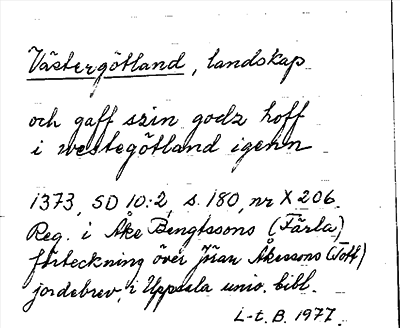 Västergötland, landskap
och gaff szin godz hoff
i westegötland igenn
1373, SD 10:2, s. 180, nr X 206.
Reg. i Åke Bengtssons (Färla)
förteckning över Jöran Åkessons (Tott)
jordebrev, i Uppsala univ. bibl.
L-t. B. 1977.